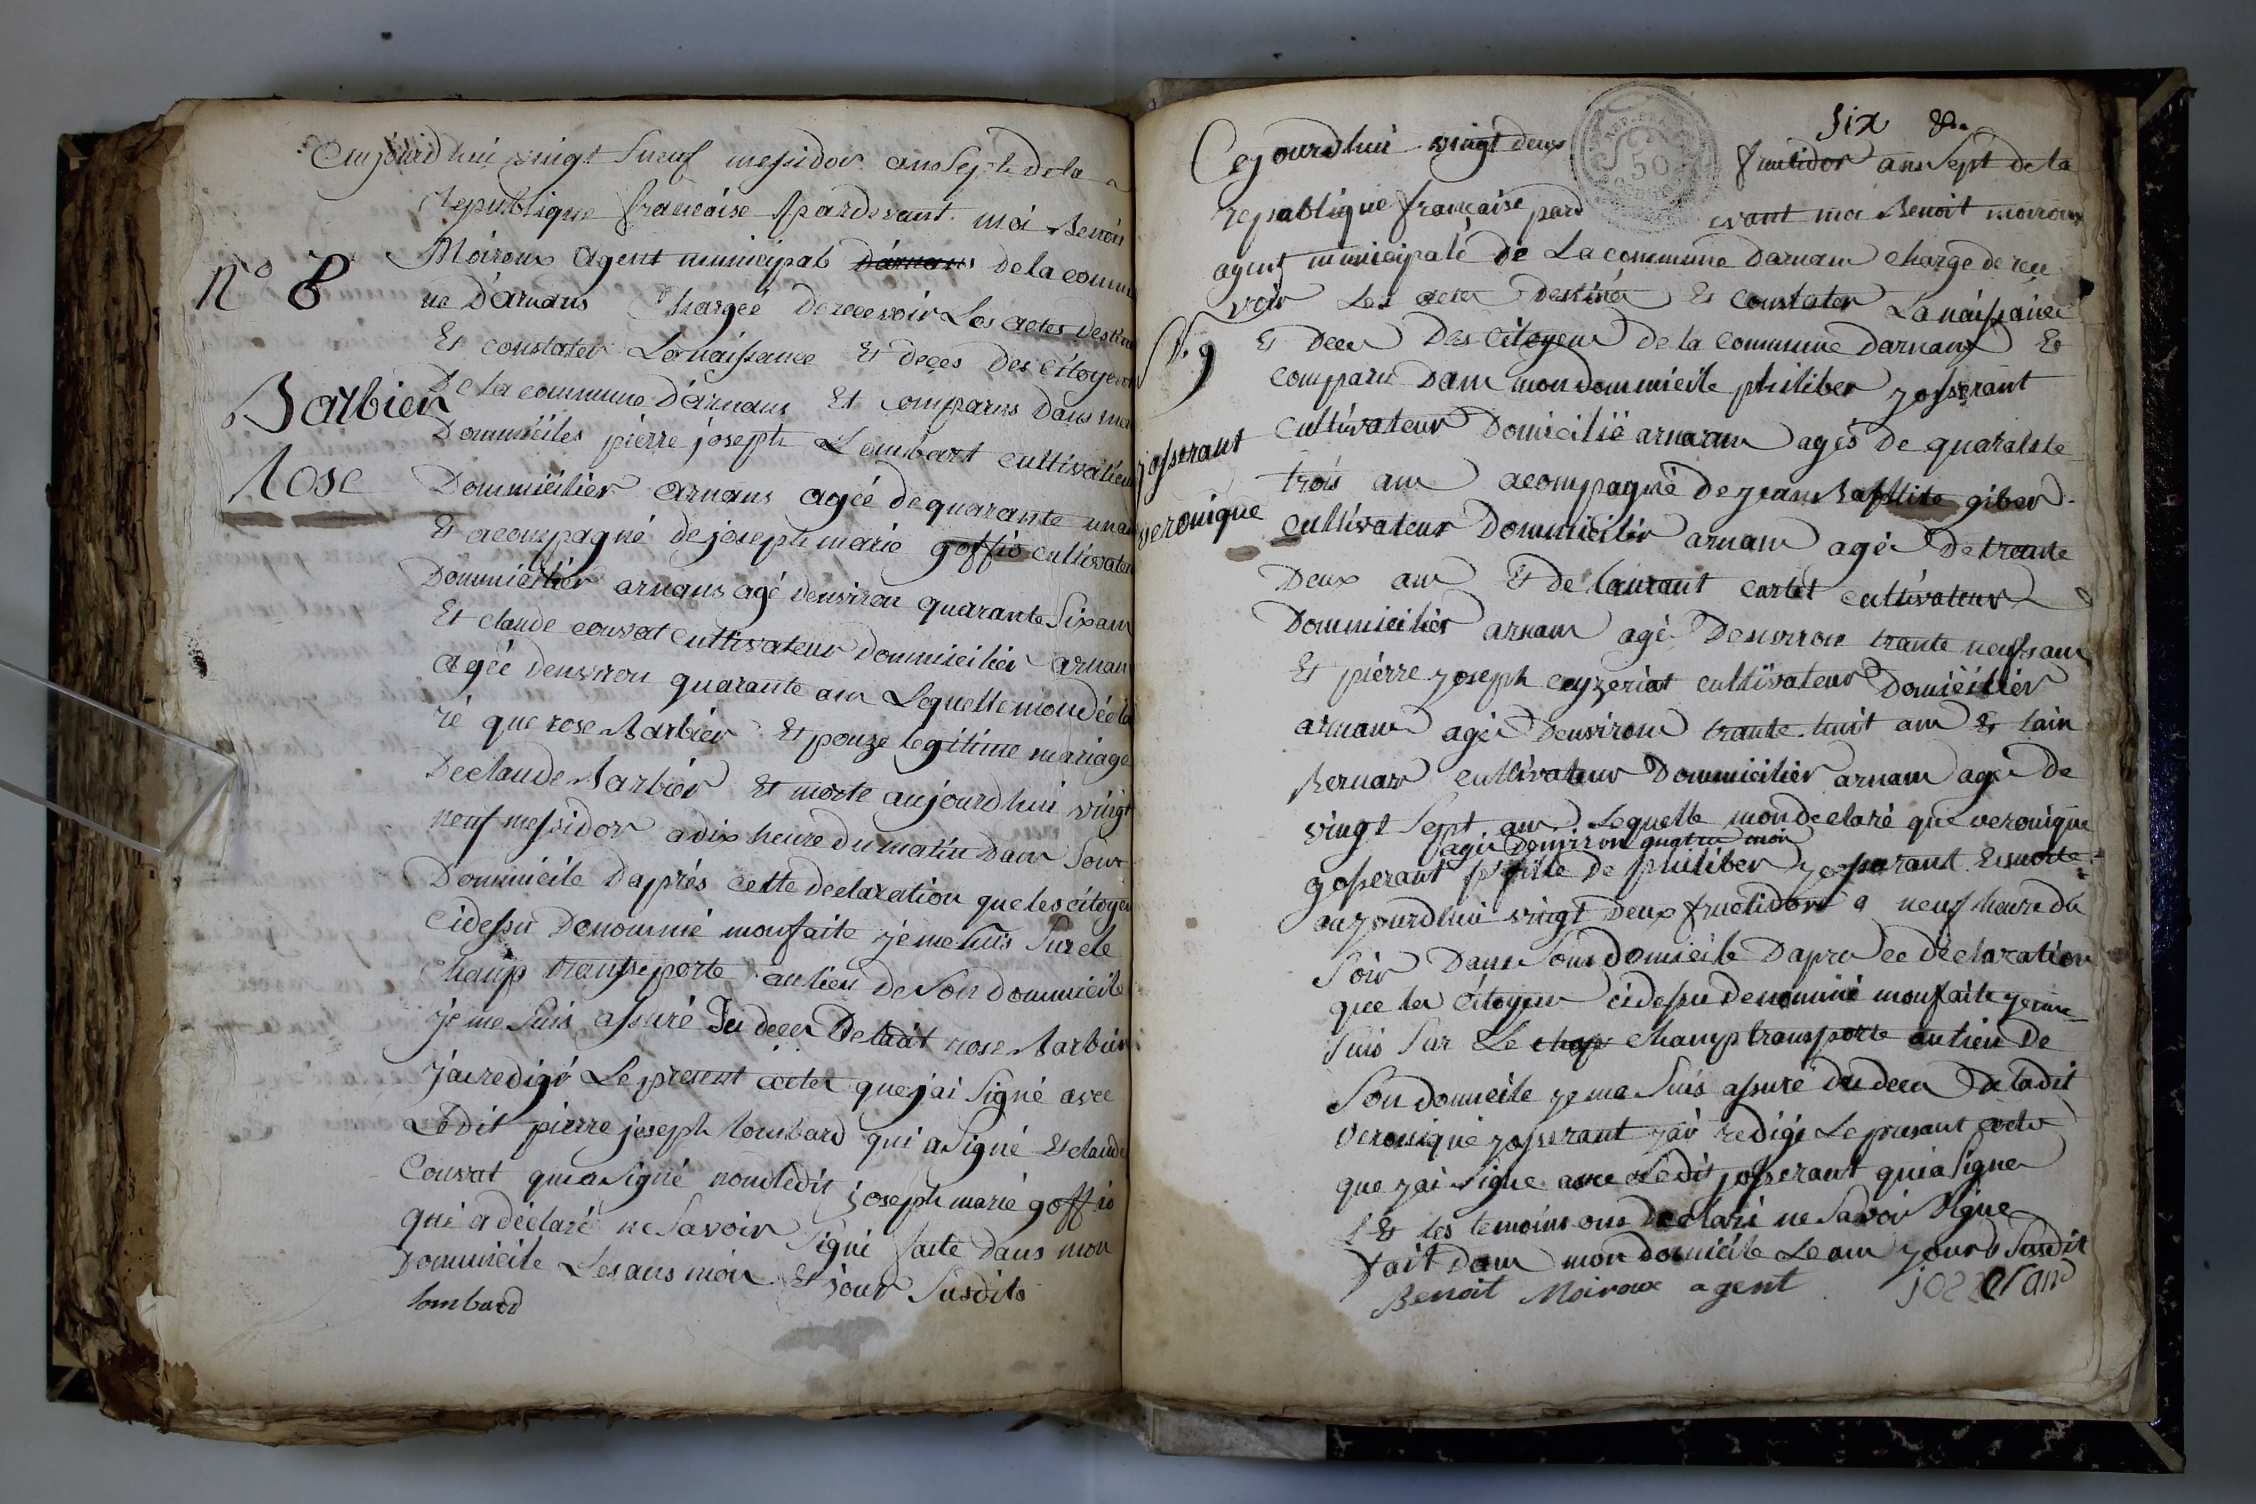 Aujourdhui vingt neuf messidor ans Sept de la
Republique française pardevant moi Benoit
Moiroux agent municipal d'arnans de la commu
N° 8
ne D'arnans Chargée de recevoir Les actes destiné
Et constater La naissance Et deces des citoyens
Barbier
De la commune D'arnans Et comparus Dans mon
Dommiciles pierre joseph Lombart cultivateur
Rose
Dommicilier arnans agée de quarante un an
Et acompagné de joseph marie goffio cultivateur
Dommicilier arnans agé denviron quarante Six ans
Et claude couvat cultivateur dommicilier arnans
agée denviron quarante ans Lequelle mon décla
ré que rose Barbier Et pouze legitime mariage
De claude Barbier Et morte aujourdhui vingt
neuf messidor a dix heure du matin Dans Son
Dommicile Daprès cette declaration que les citoyen
Cidessu Denommé mon faite je me Suis Sur le
champ transeporte au lieu de Son dommicile
je me Suis assuré Du deces De ladit rose Barbier
J'ai redigé Le present acte que j'ai Signé avec
Ledit pierre joseph lombard qui a Signé Et claude
Couvat qui a Signé non ledit joseph marie goffio
qui a déclaré ne Savoir Signé faite dans mon
Dommicile Les ans moi Et jour Susdits
lombard
Six
Cejourdhui vingt deux fructidor ans Sept de la
republique française pardevant moi Benoit moiroux
agent municipale de La commune Darnans charge de rece
voir Les actes Destiné Et Constater La naissance
N. 9
Et Deces Des citoyens de la commune Darnans Et
comparu Dans mon dommicile philiber josserant
josserant
cultivateur Domicilié arnans agés de quarante
veronique
trois ans acompagné de jean Baptiste giber
cultivateur Dommicilier arnans agée De trante
Deux ans Et de laurant carlet cultivateur
Dommicilier arnans agé Denviron trante neuf ans
Et pierre joseph ceyzeriat cultivateur Domicilier
arnans agée Denviron trante huit ans Et
Bernar cultivateur Dommicilier arnans agé de
vingt Sept ans Lequelle mon declaré que veronique
agée Denviron quatre moi
josserant fille de philiber josserant Et morte
aujourdhui vingt Deux fructidor a neuf heure du
Soir Dans Son domicile Dapres ce déclaration
que les citoyen cidessu denommé mon faite je me
Suis Sur Le chap champ transporte au lieu De
Son domicile je me Suis assuré du deces De ladit
veronique josserant j'ai redigé Le presant acte
que j'ai Signe avec Ledit josserant qui a Signe
Et les temoins ons declaré ne Savoir Signe
fait Dans mon domicile Le ans jour Susdit
Benoit Moiroux agent josserand